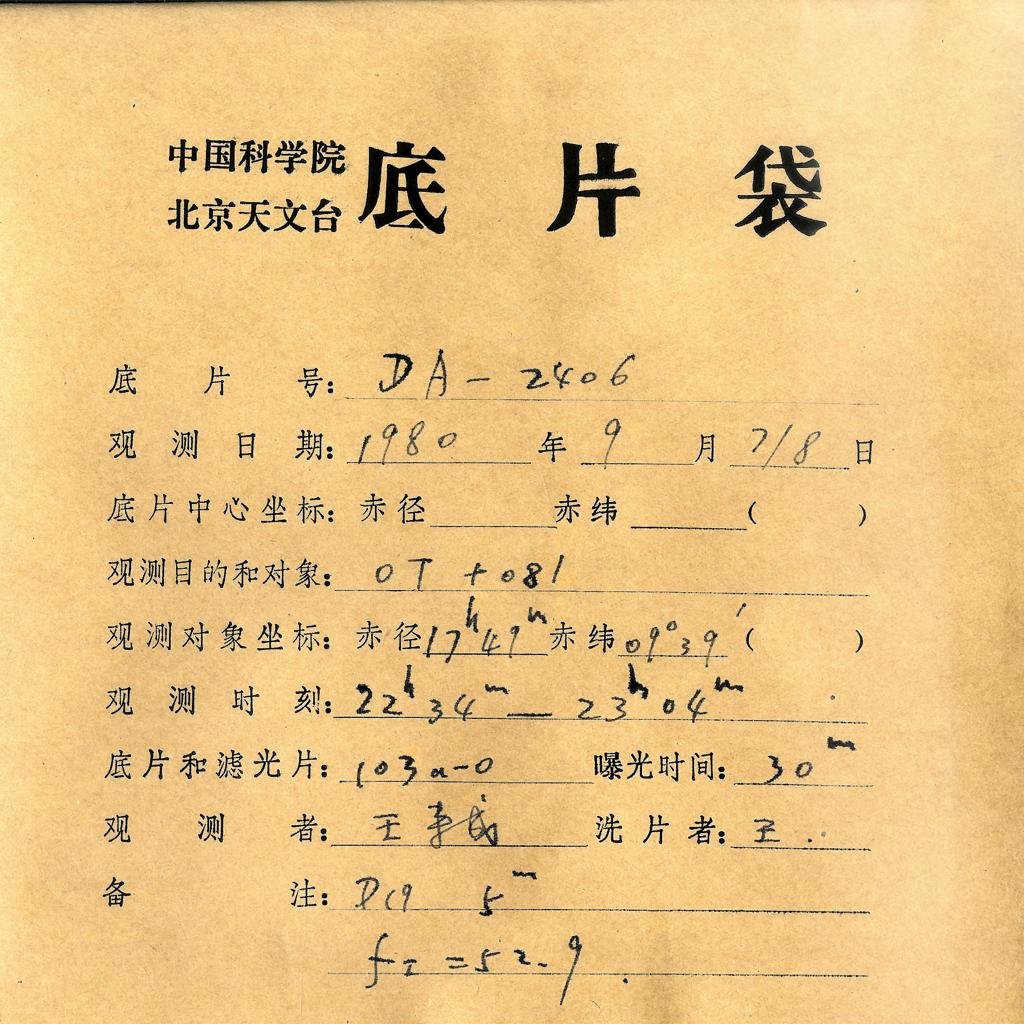 中国科学院
北京天文台
底片袋
底片号: DA-2406
观测日期: 1980年9月7/8日
底片中心坐标: 赤径 赤纬 ( )
观测目的和对象: OT+081
观测对象坐标: 赤径17h49m赤纬09°39′( )
观测时刻: 22h34m—23h04m
底片和滤光片: 103a-0 曝光时间: 30m
观测者: 王 洗片者: 王.
备注: D19 5m
=52.9